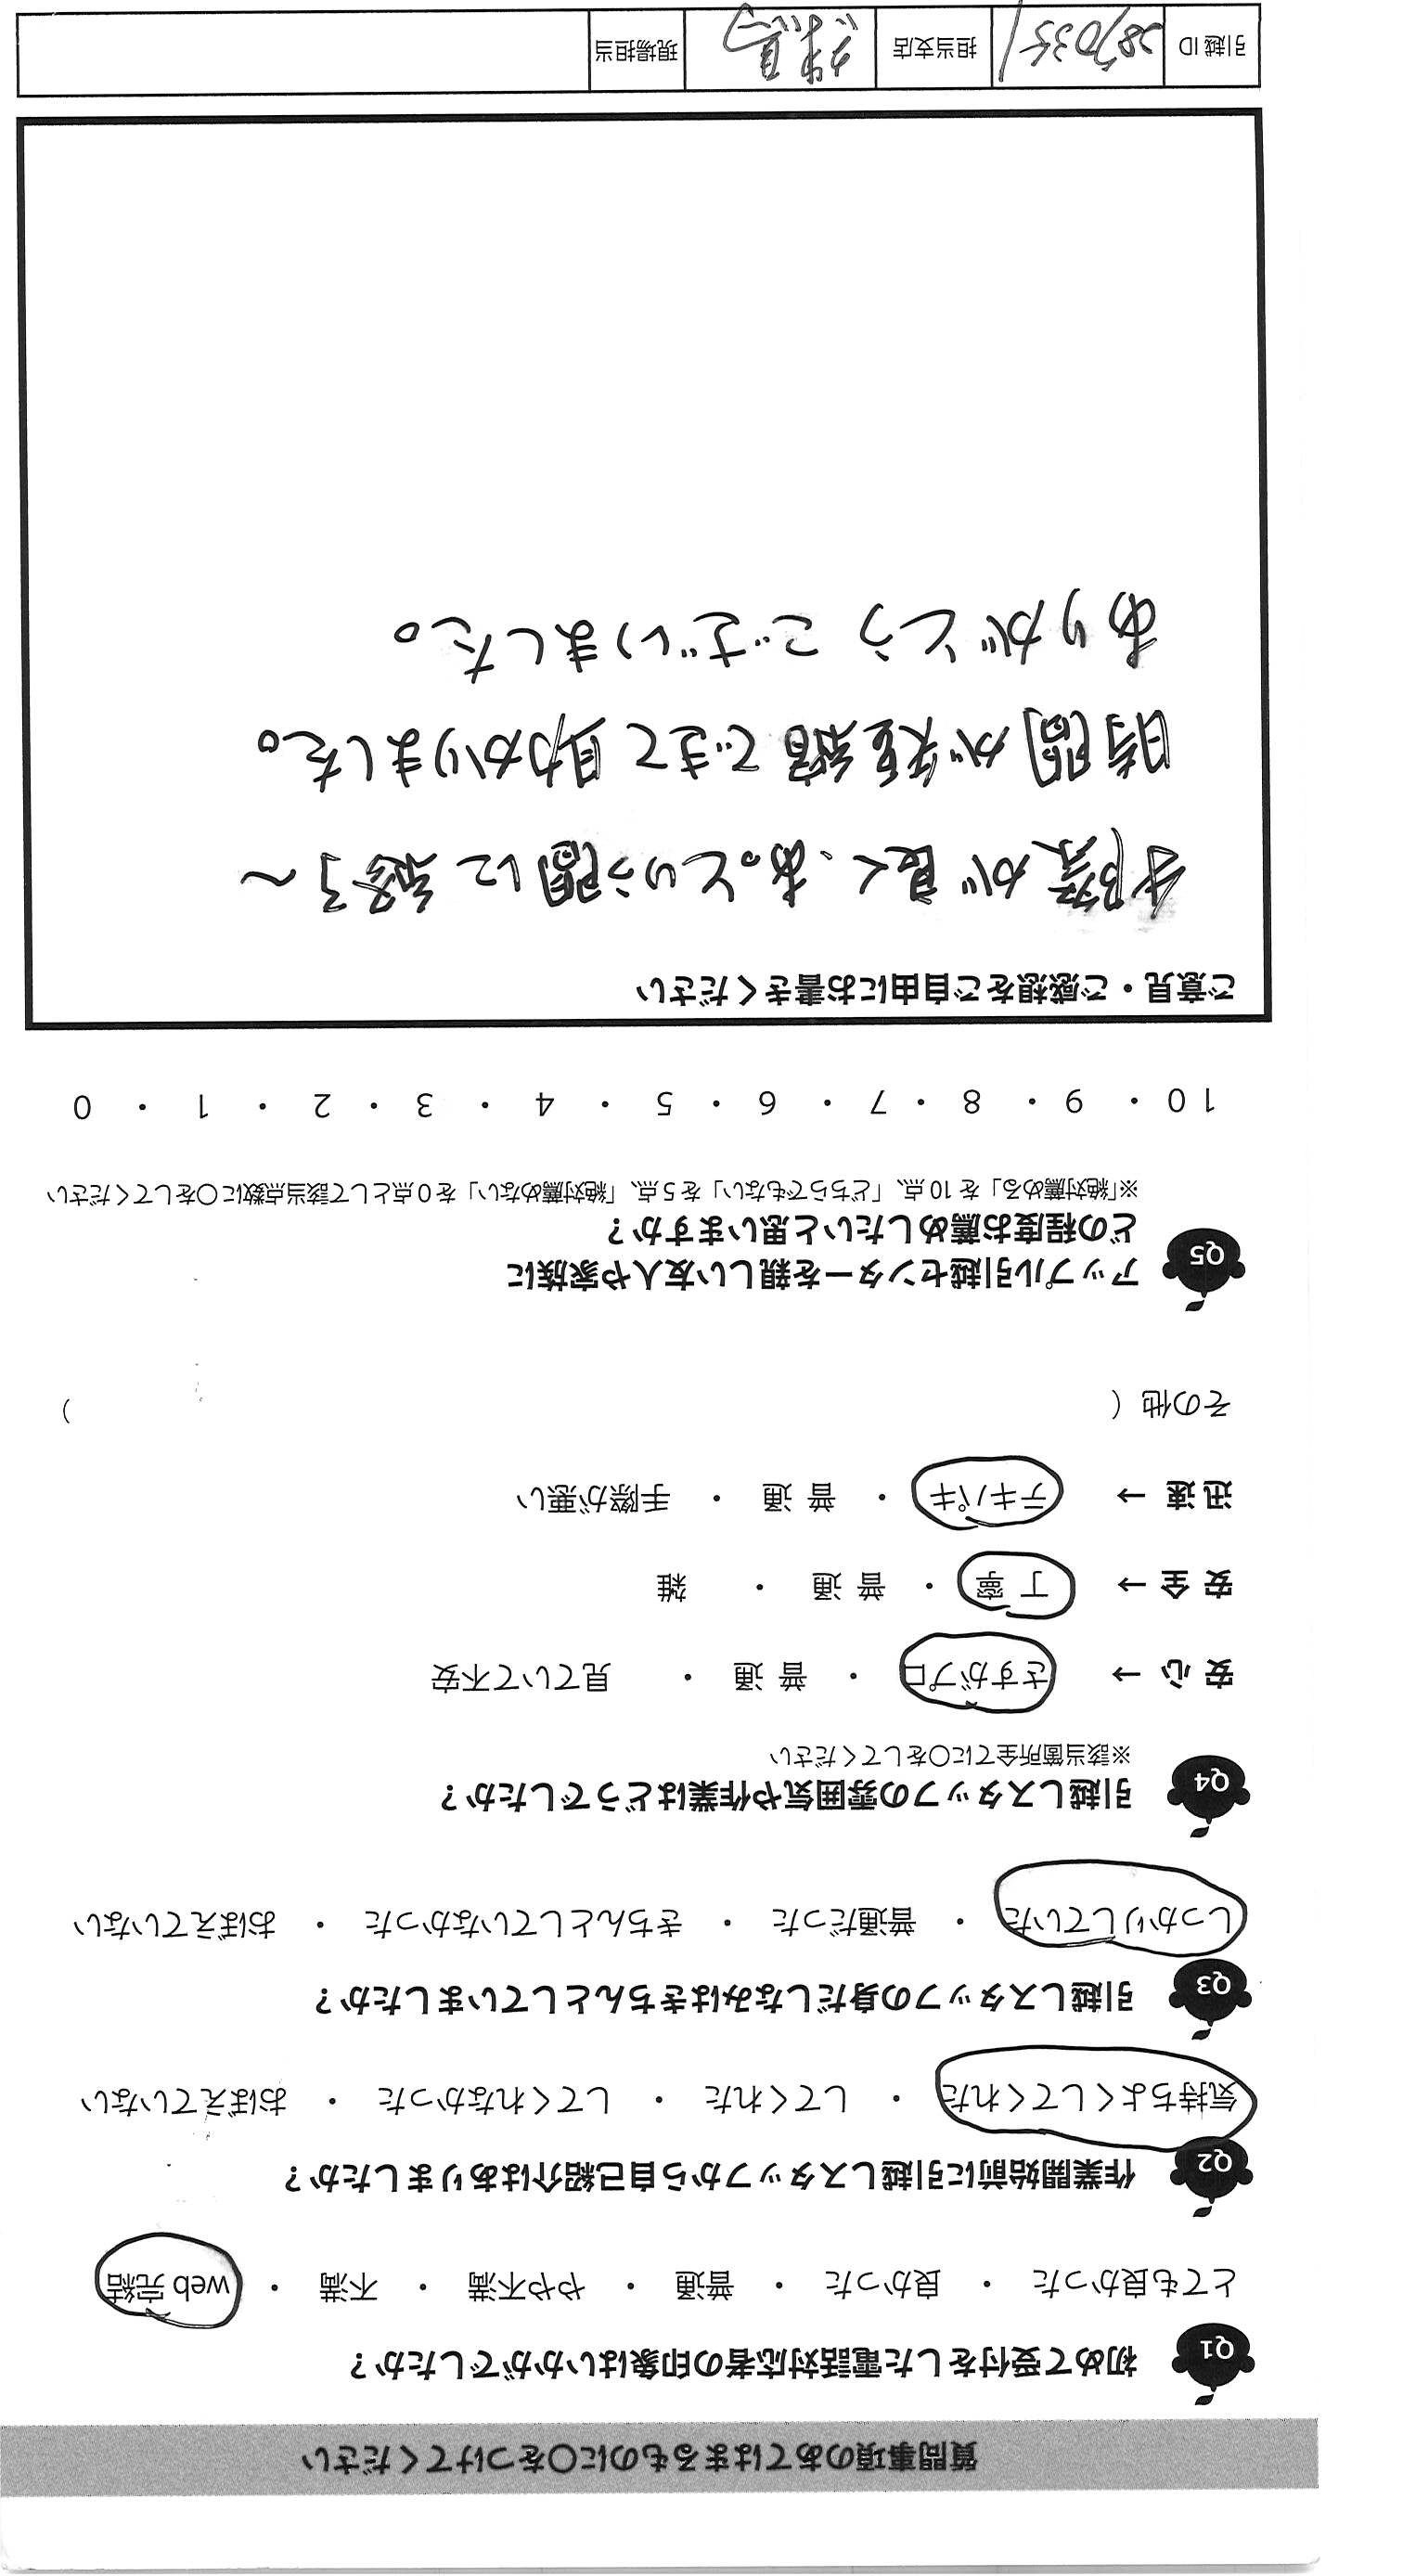 質問事項のあてはまるものに○をつけてください
Q1 初めて受付をした電話対応者の印象はいかがでしたか？
とても良かった ・ 良かった ・ 普通 ・ やや不満 ・ 不満 ・ web 完結
Q2 作業開始前に引越しスタッフから自己紹介はありましたか？
気持ちよくしてくれた ・ してくれた ・ してくれなかった ・ おぼえていない
Q3 引越しスタッフの身だしなみはきちんとしていましたか？
しっかりしていた ・ 普通だった ・ きちんとしていなかった ・ おぼえていない
Q4 引越しスタッフの雰囲気や作業はどうでしたか？
※該当箇所全てに○をしてください
安 心 → さすがプロ ・ 普 通 ・ 見ていて不安
安 全 → 丁 寧 ・ 普 通 ・ 雑
迅 速 → テキパキ ・ 普 通 ・ 手際が悪い
その他（ ）
Q5 アップル引越センターを親しい友人や家族に
どの程度お薦めしたいと思いますか？
※「絶対薦める」を 10 点、「どちらでもない」を 5 点、「絶対薦めない」を 0 点として該当点数に○をしてください
10 ・ 9 ・ 8 ・ 7 ・ 6 ・ 5 ・ 4 ・ 3 ・ 2 ・ 1 ・ 0
ご意見・ご感想をご自由にお書きください
手際が良く、あっという間に終了～
時間が短縮できて助かりました。
ありがとうございました。
引越 ID 担当支店 現場担当